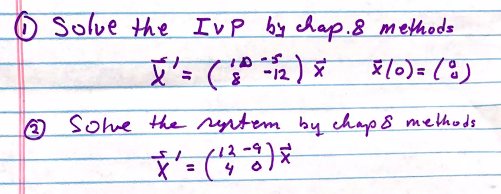 ① Solve the IVP by chap. 8 methods
x⃗' = (10 -5
8 -12) x⃗ x⃗(0) = (0
0)
② Solve the system by chap 8 methods
x⃗' = (12 -9
4 0) x⃗